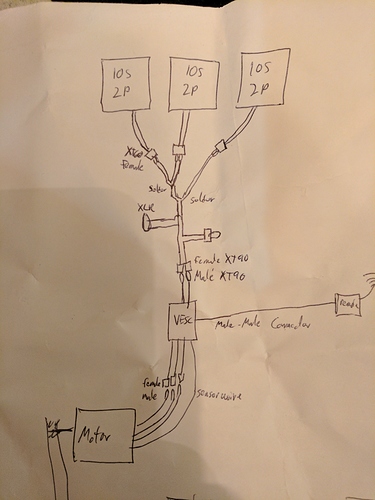 10S
2P
10S
2P
10S
2P
XT60
Female
solder
soldier
XLR
female XT90
Male XT90
VESC
Male-Male Connector
female
male
sensor wire
Motor